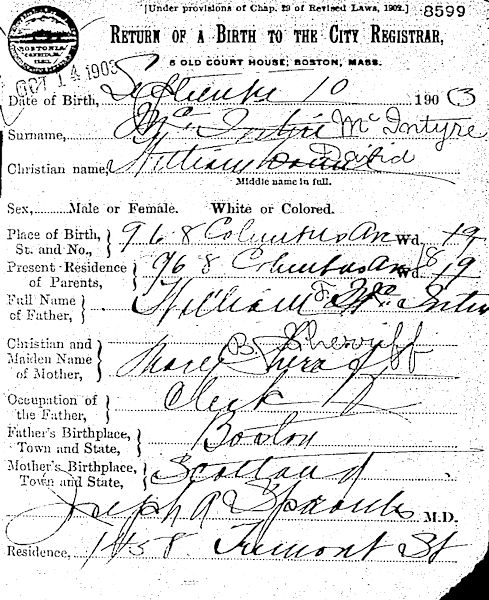 [Under provisions of Chap. 29 of Revised Laws, 1902.] 8599
RETURN OF A BIRTH TO THE CITY REGISTRAR,
5 OLD COURT HOUSE, BOSTON, MASS.
OCT 14 1903
Date of Birth, September 10 1903
Surname, McIntire McIntyre
Christian name, William David
Middle name in full.
Sex, Male or Female. White or Colored.
Place of Birth, St. and No., 968 Columbus Av Wd. 19
18
Present Residence of Parents, 968 Columbus Av Wd 19
Full Name of Father, William F. McIntire
Sherriff
Christian and Maiden Name of Mother, Mary B.
Occupation of the Father, Clerk
Father's Birthplace, Town and State, Boston
Mother's Birthplace, Town and State, Scotland
Joseph A M.D.
Residence, 1458 Tremont St